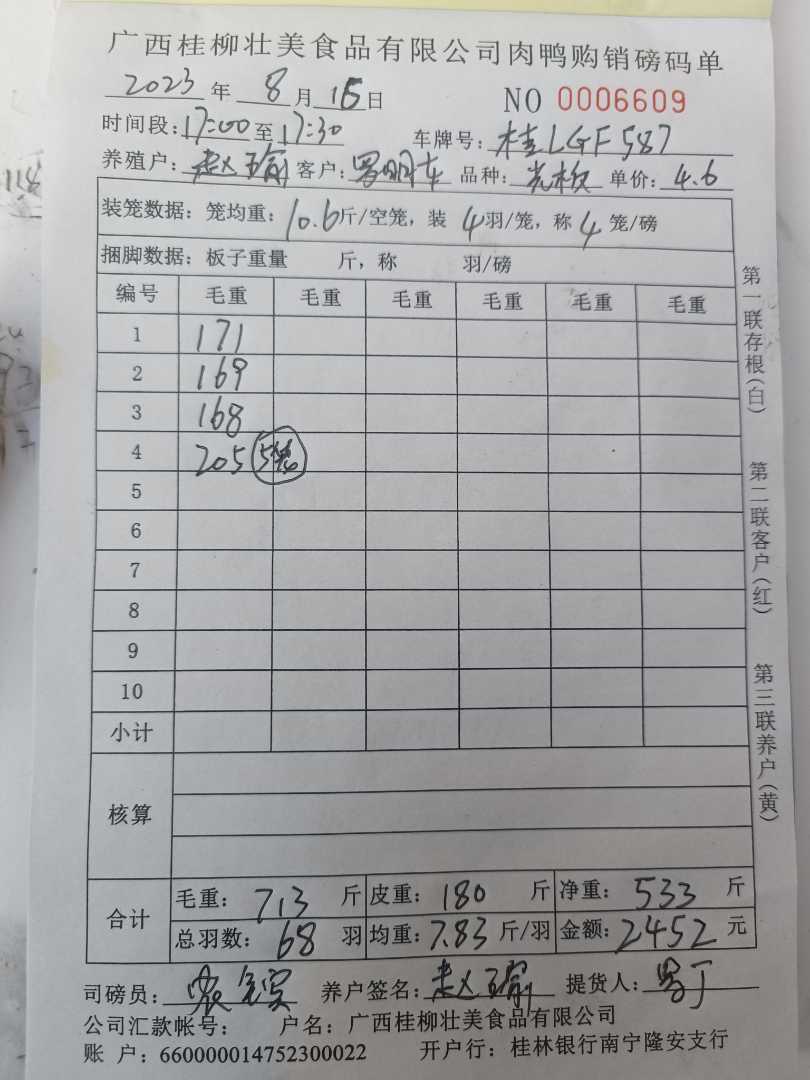 广西桂柳壮美食品有限公司肉鸭购销磅码单
2023年 8月15日 NO 0006609
时间段:17:00至17:30 车牌号:桂LGF587
养殖户:赵玉瑜 客户:罗明车 品种: 单价:4.6
装笼数据:笼均重:10.6斤/空笼,装 4羽/笼,称4笼/磅
捆脚数据:板子重量 斤,称 羽/磅
编号 毛重 毛重 毛重 毛重 毛重 毛重
1 171
2 169
3 168
4 205 5笼
5
6
7
8
9
10
小计
核算
合计
毛重:713斤 皮重:180斤 净重:533斤
总羽数:68羽 均重:7.83斤/羽 金额:2452元
司磅员: 养户签名:赵玉瑜 提货人:
公司汇款帐号: 户名:广西桂柳壮美食品有限公司
账 户:660000014752300022 开户行:桂林银行南宁隆安支行
第一联存根(白)
第二联客户(红)
第三联养户(黄)
118